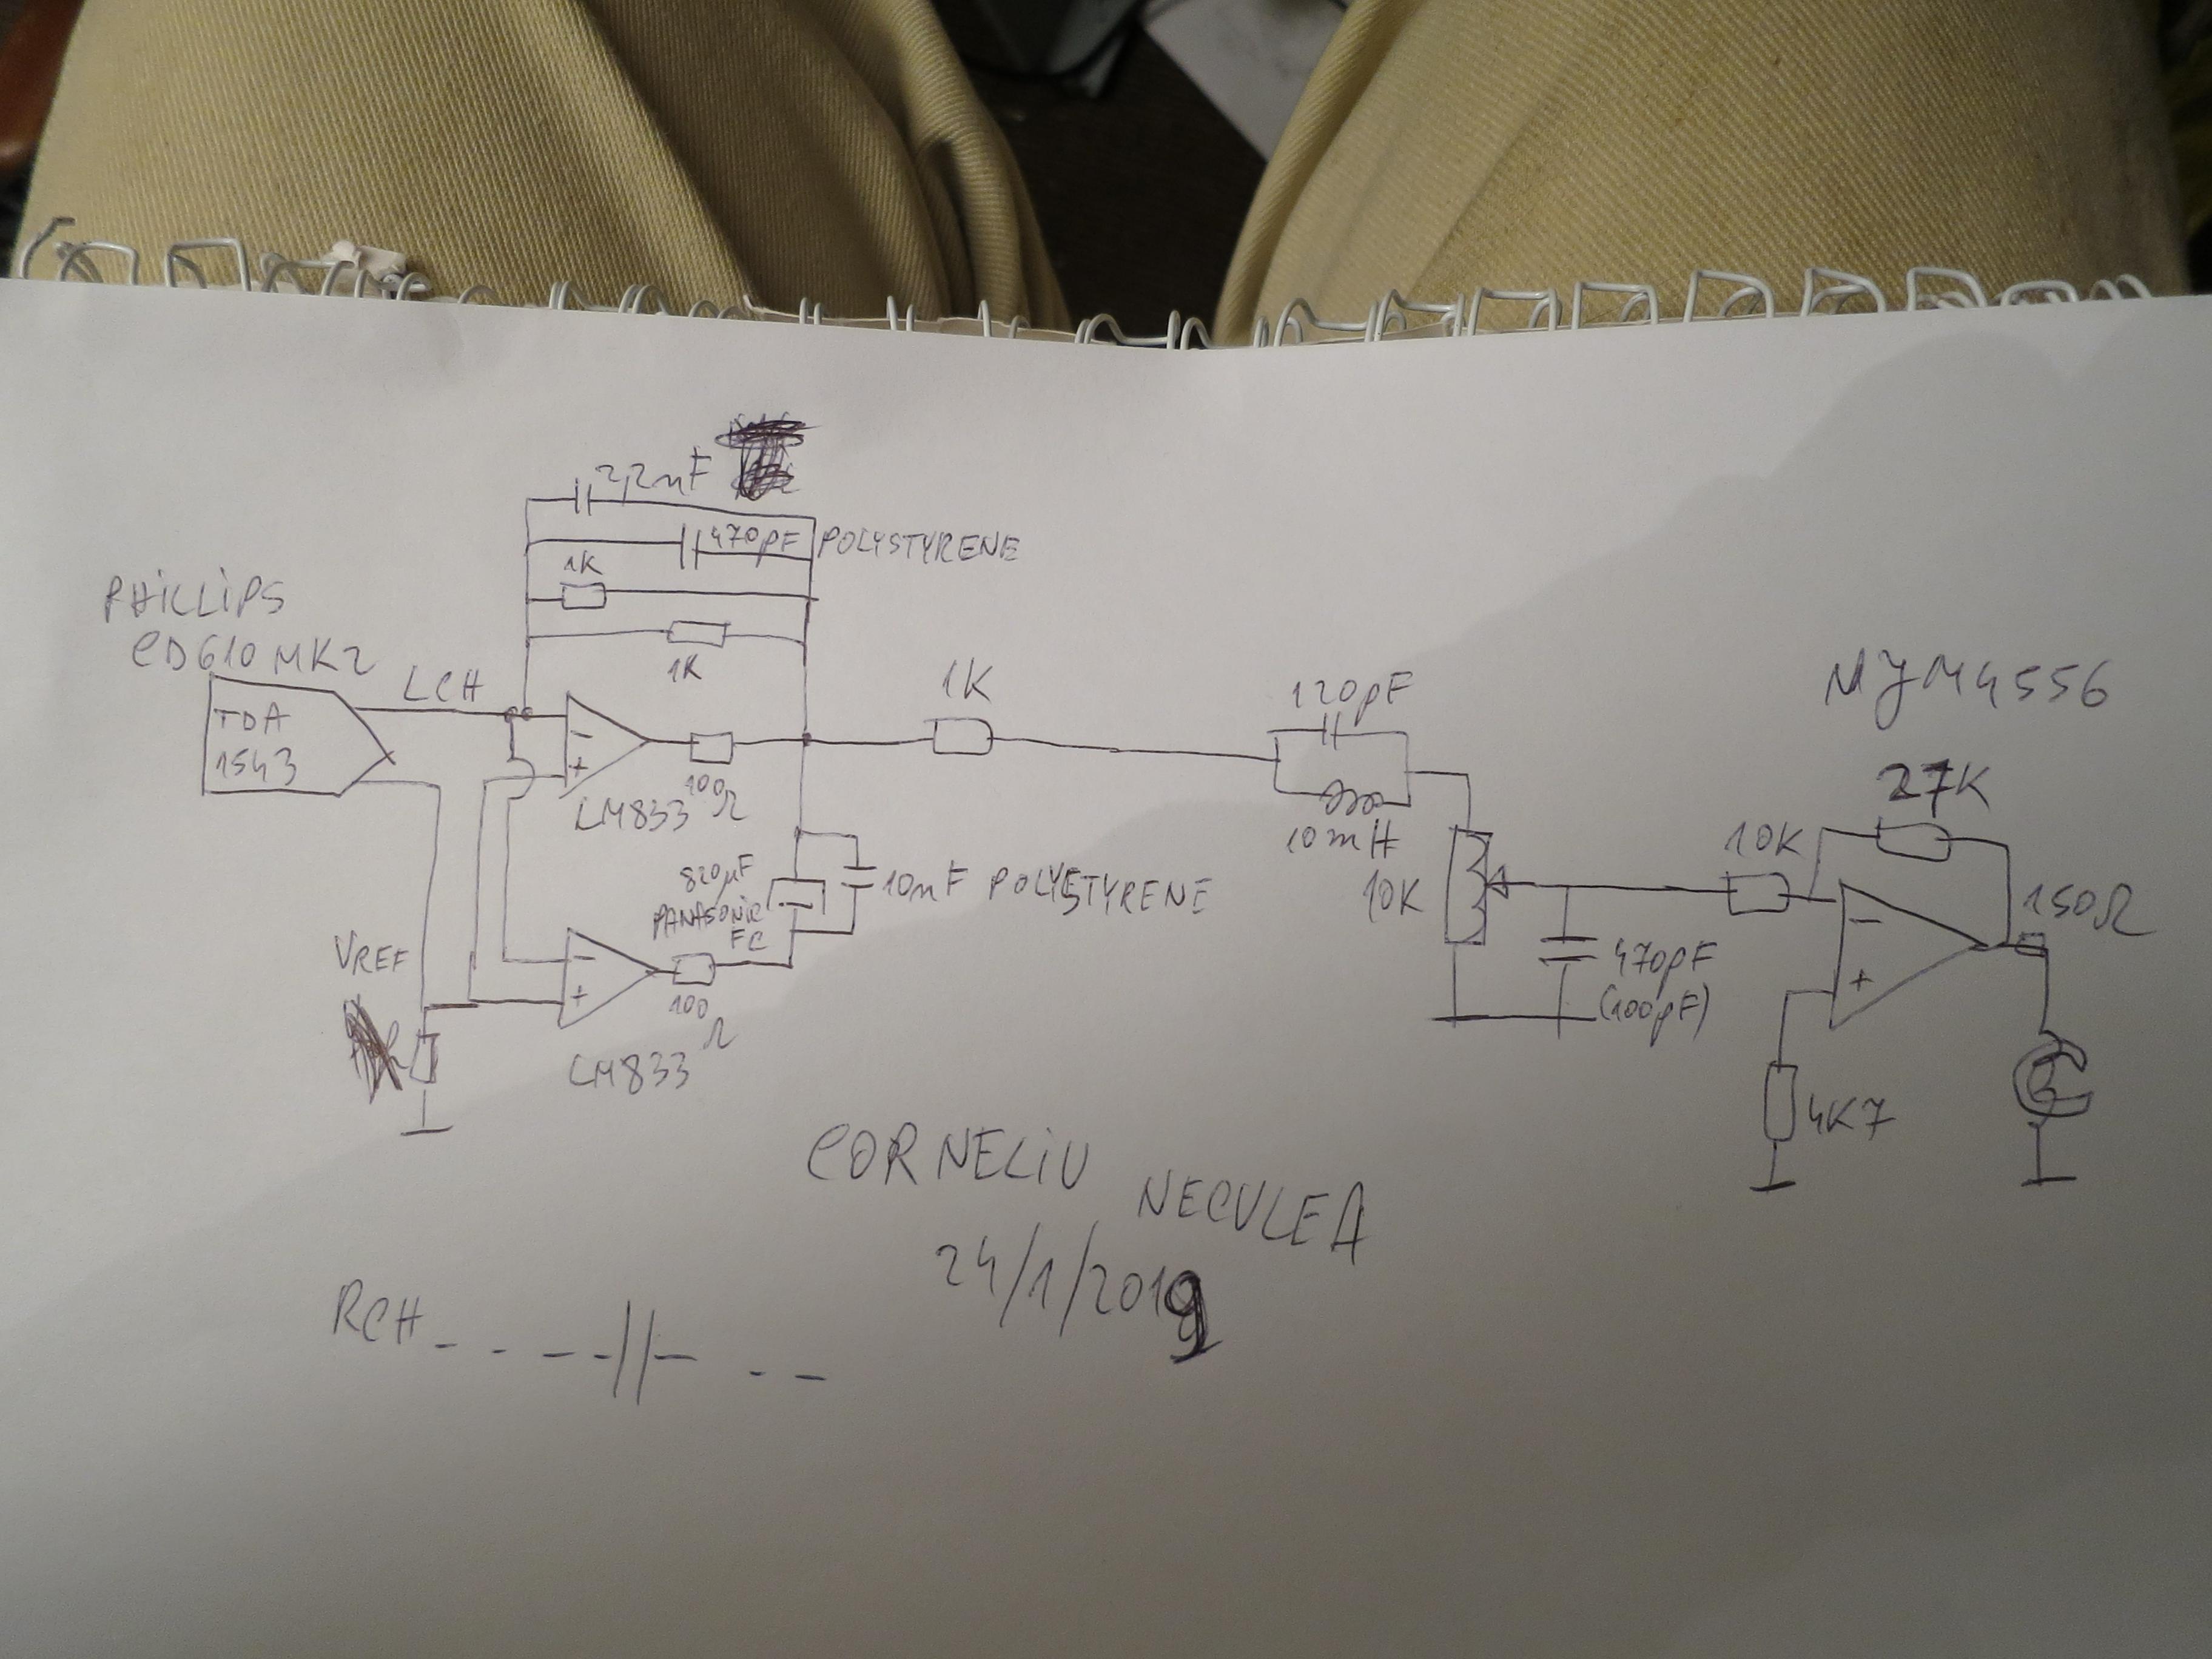 2,2nF
470pF POLYSTYRENE
1K
1K
PHILLIPS
CD610 MK2
LCH
TDA
1543
-
+
LM833
100Ω
1K
120pF
10mH
10K
470pF
(100pF)
NJM4556
27K
10K
150Ω
-
+
4K7
820µF
PANASONIC
FC
10nF POLYSTYRENE
VREF
-
+
LM833
100Ω
CORNELIU NECULEA
24/1/2019
RCH - - - - // - - -